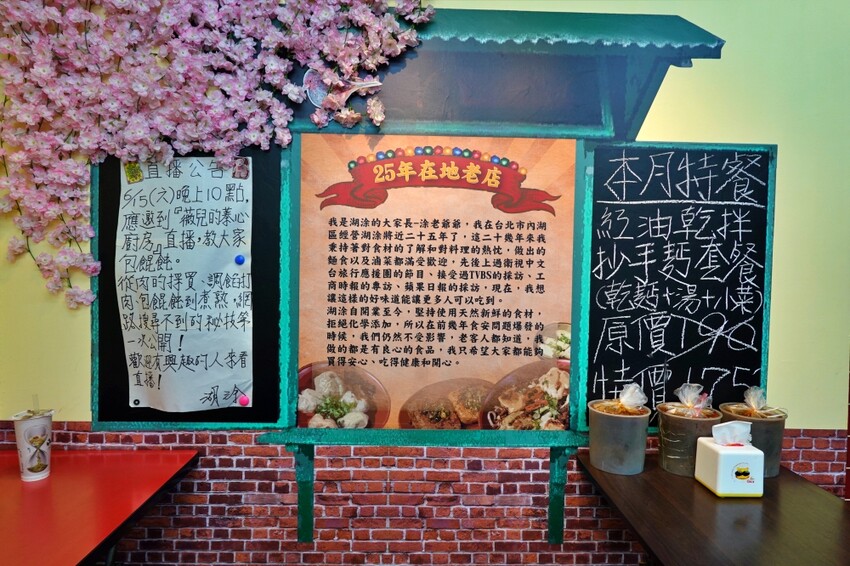 直播公告
5/15(六)晚上10點,
應邀到『薇兒的綦心
廚房』直播,教大家
包餛飩。
從肉的採買、調餡打
肉、包餛飩到煮熟,網
路搜尋不到的秘技第
一次公開!
歡迎有興趣的人來看
直播!
湖涂
25年在地老店
我是湖涂的大家長-涂老爺爺,我在台北市內湖
區經營湖涂將近二十五年了,這二十幾年來我
秉持著對食材的了解和對料理的熱忱,做出的
麵食以及滷菜都滿受歡迎,先後上過衛視中文
台旅行應援團的節目、接受過TVBS的採訪、工
商時報的專訪、蘋果日報的採訪,現在,我想
讓這樣的好味道能讓更多人可以吃到。
湖涂自開業至今,堅持使用天然新鮮的食材,
拒絕化學添加,所以在前幾年食安問題爆發的
時候,我們仍然不受影響,老客人都知道,我
做的都是有良心的食品,我只希望大家都能夠
買得安心、吃得健康和開心。
本月特餐
紅油乾拌
抄手麵套餐
(乾麵+湯+小菜)
原價190
特價175